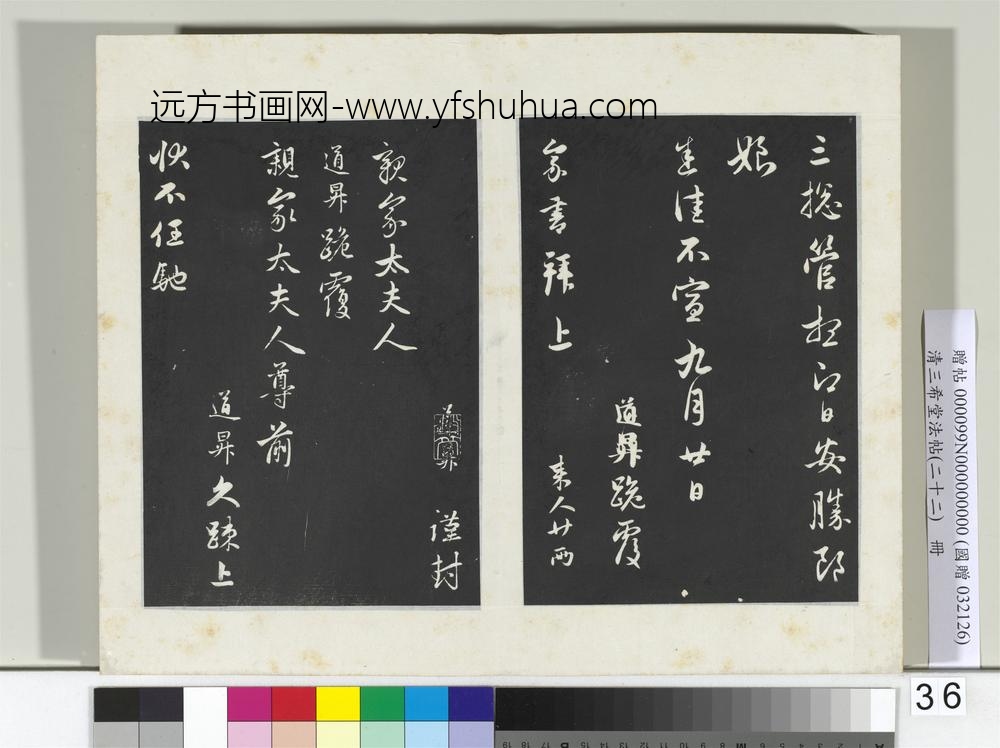 远方书画网-www.yfshuhua.com
三總管想即日安勝郎
娘
進佳不宣九月廿日
道昇跪覆
來人廿兩
家書拜上
謹封
親家太夫人
道昇跪覆
親家太夫人尊前
道昇久疎上
狀不任馳
贈帖 000099N000000000 (國贈 032126)
清三希堂法帖(二十二) 冊
36